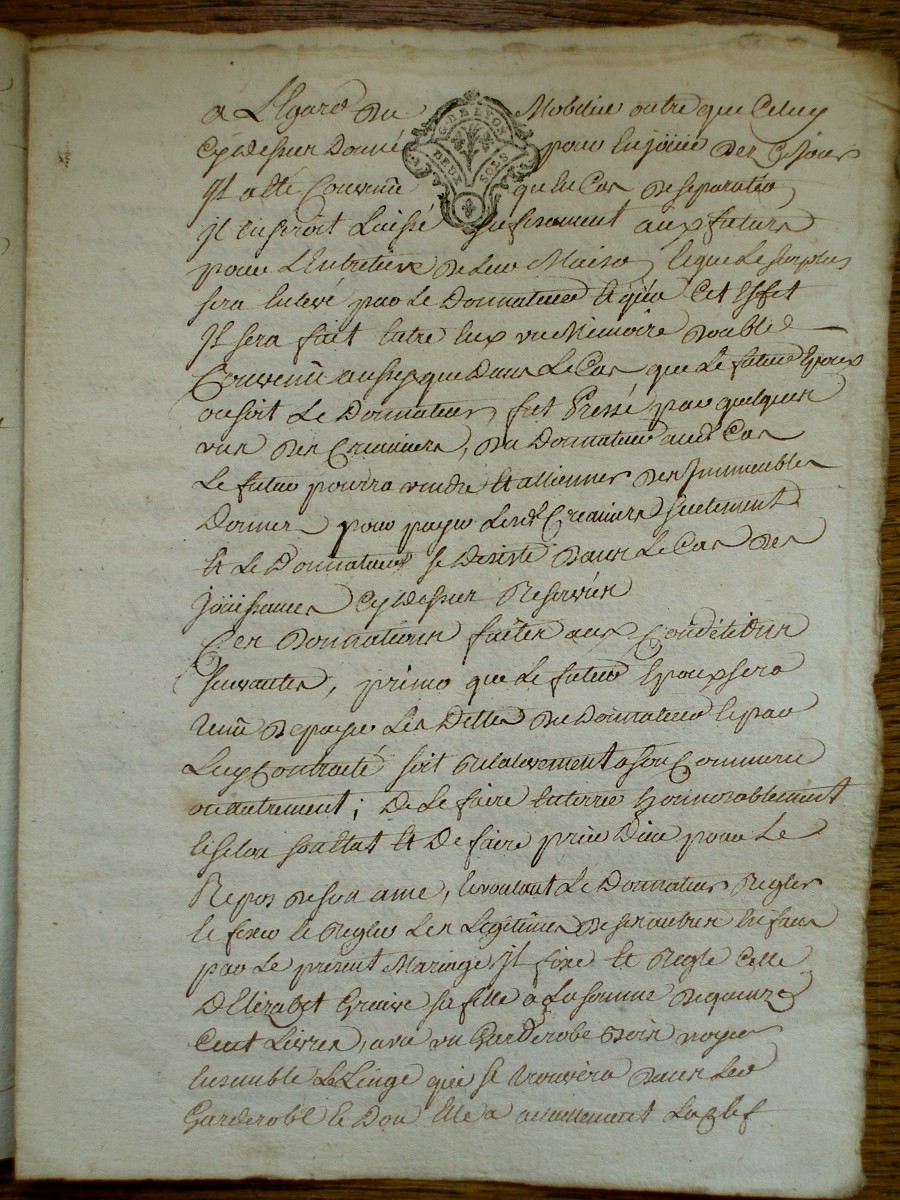 a L'Egard du Mobilier outre que Celuy
G. DE LYON
DEUX SOLS
Cydessus Donné pour En joüir des Ce jour
Il a Eté Convenu qu'en Cas de separation
il En seroit Laissé sufisament aux futurs
pour L'Entretien de Leur Maison, Et que Le surplus
sera Enlevé par Le Donnateur Et qu'a Cet Effet
Il sera fait Entre Eux un Memoire Double
Convenu aussy que Dans Le Cas que Le futur Epoux
ou soit Le Donnateur, fut Pressé par quelques
uns des Creanciers, du Donnateur aud. Cas
Le futur pourra vendre Et allienner des Immeubles
Donnés pour payer Lesd. Creanciers seulement
Et Le Donnateur se Desiste Dans Le Cas des
joüissances Cydessus Reservées
Ces Donnations faites aux Condétions
suivantes, primo que Le futur Epoux sera
tenu de payer Les Dettes du Donnateur Et par
Luy Contraité soit Relativement a son Commerce
ou autrement; De Le faire Enterrer honnorablement
Et selon son Etat Et De faire prier Dieu pour Le
Repos de son ame, Et voulant Le Donnateur Regler
Et fixer Le Regler Les Legitimes de ses autres Enfans
par Le present Mariage, Il fixe Et Regle Celle
D'Elizabet sa fille a La somme de quinze
Cent Livres, avec un Garderobe Bois noyer
Ensemble Le Linge qui se trouvera dans Led.
Garderobe Et Don Elle a actuellement La Clef